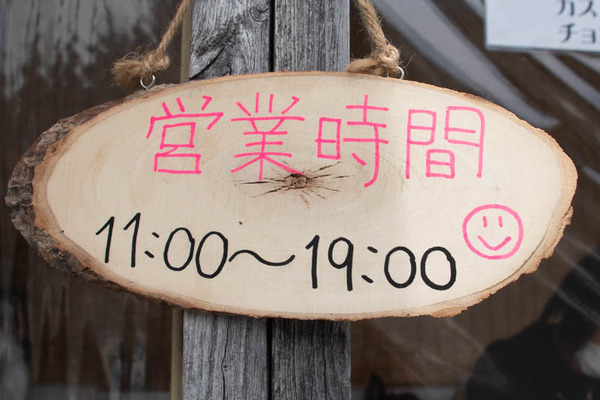 カス
チョ
営業時間
11:00〜19:00